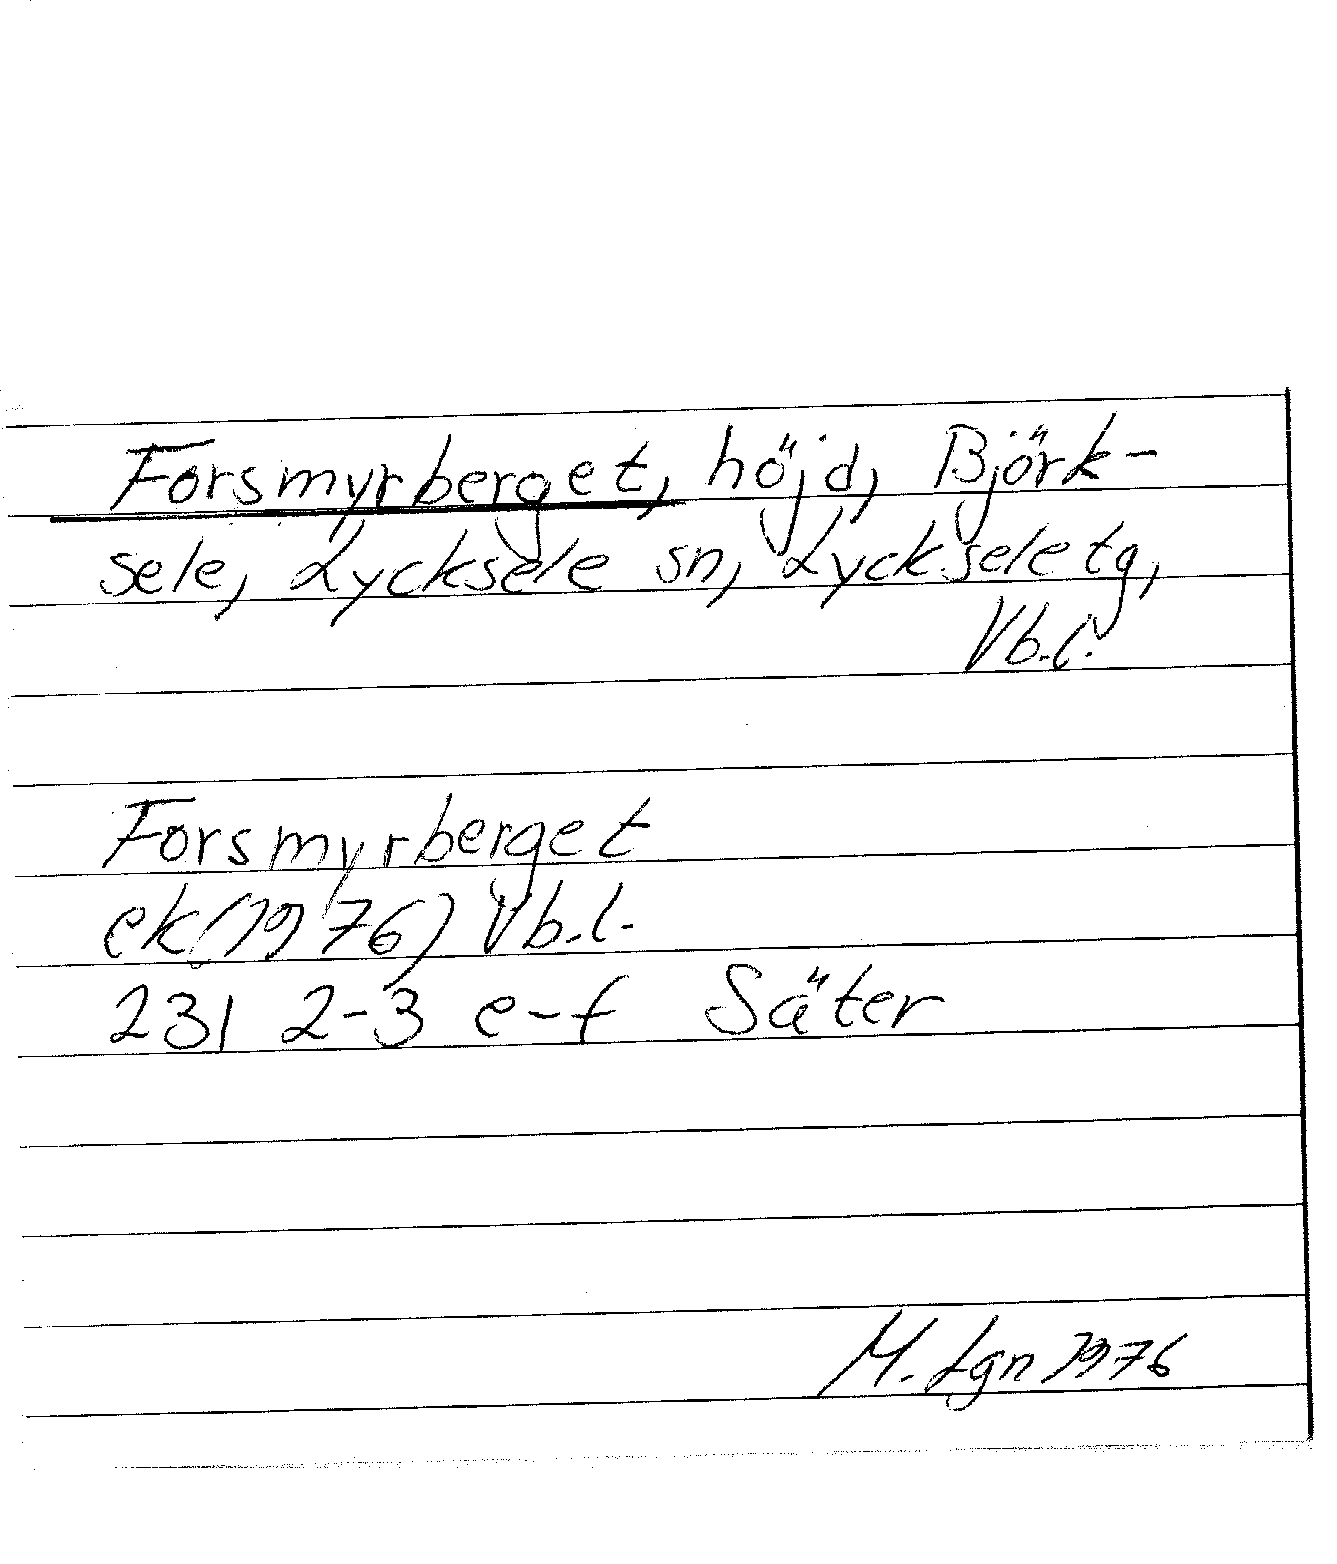 Forsmyrberget, höjd, Björk-
sele, Lycksele sn, Lycksele tg,
Vb.l.
Forsmyrberget
ek(1976) Vb.l.
231 2-3 e-f Säter
M. Lgn 1976